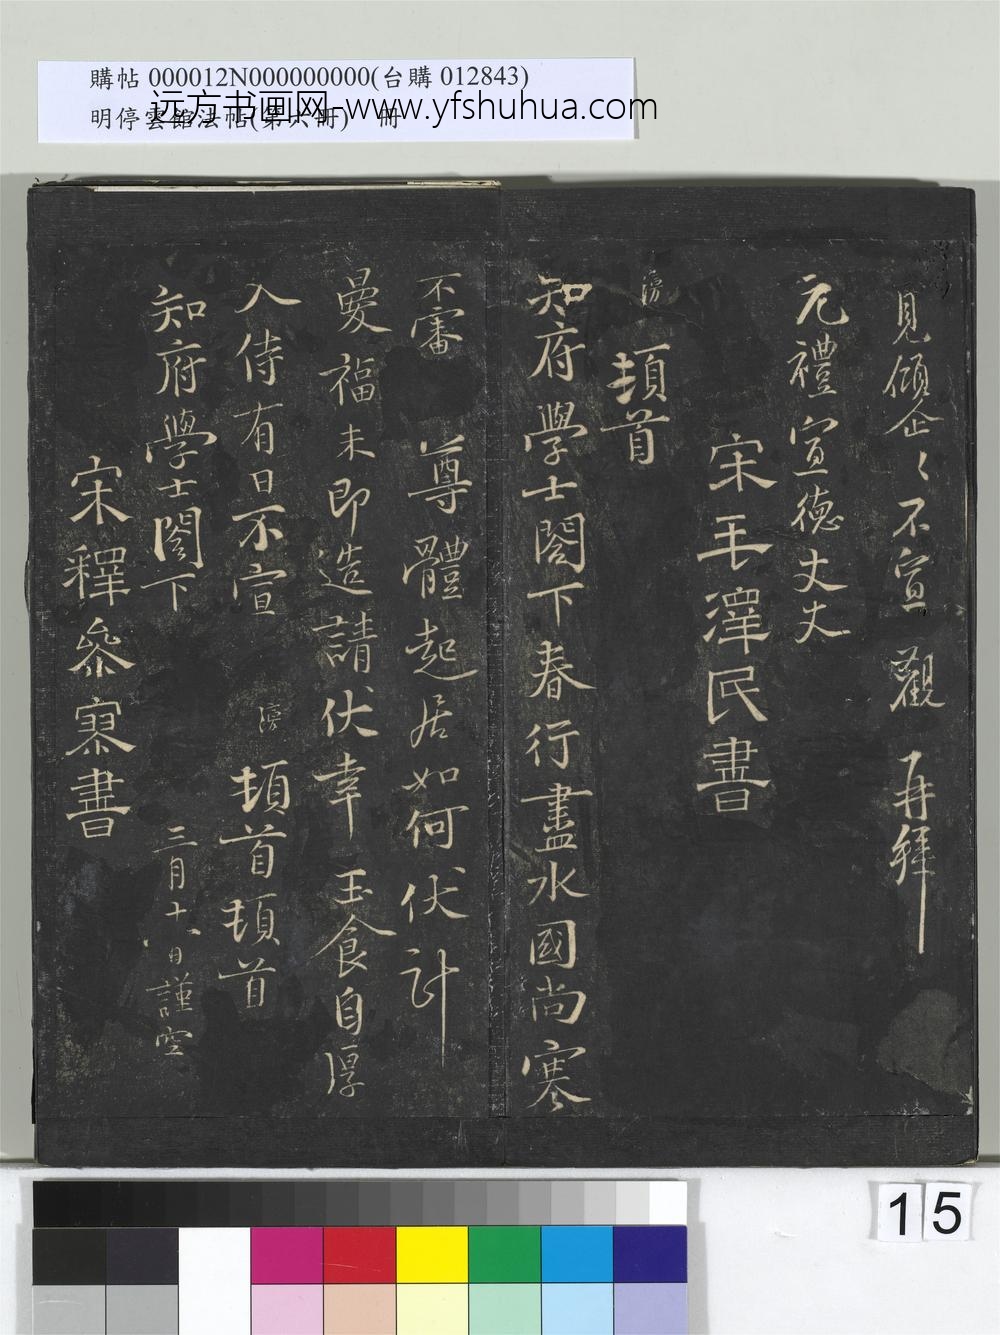 購帖 000012N000000000(台購 012843)
明停雲館法帖(第六冊) 冊
远方书画网-www.yfshuhua.com
見傾企〻不宣 觀 再拜
元禮宣德丈丈
宋毛澤民書
滂 頓首
知府學士閤下春行盡水國尚寒
不審 尊體起居如何伏計
曼福未即造請伏幸 玉食自厚
入侍有日不宣 滂 頓首頓首
知府學士閤下 三月十八日謹空
宋釋參寥書
15